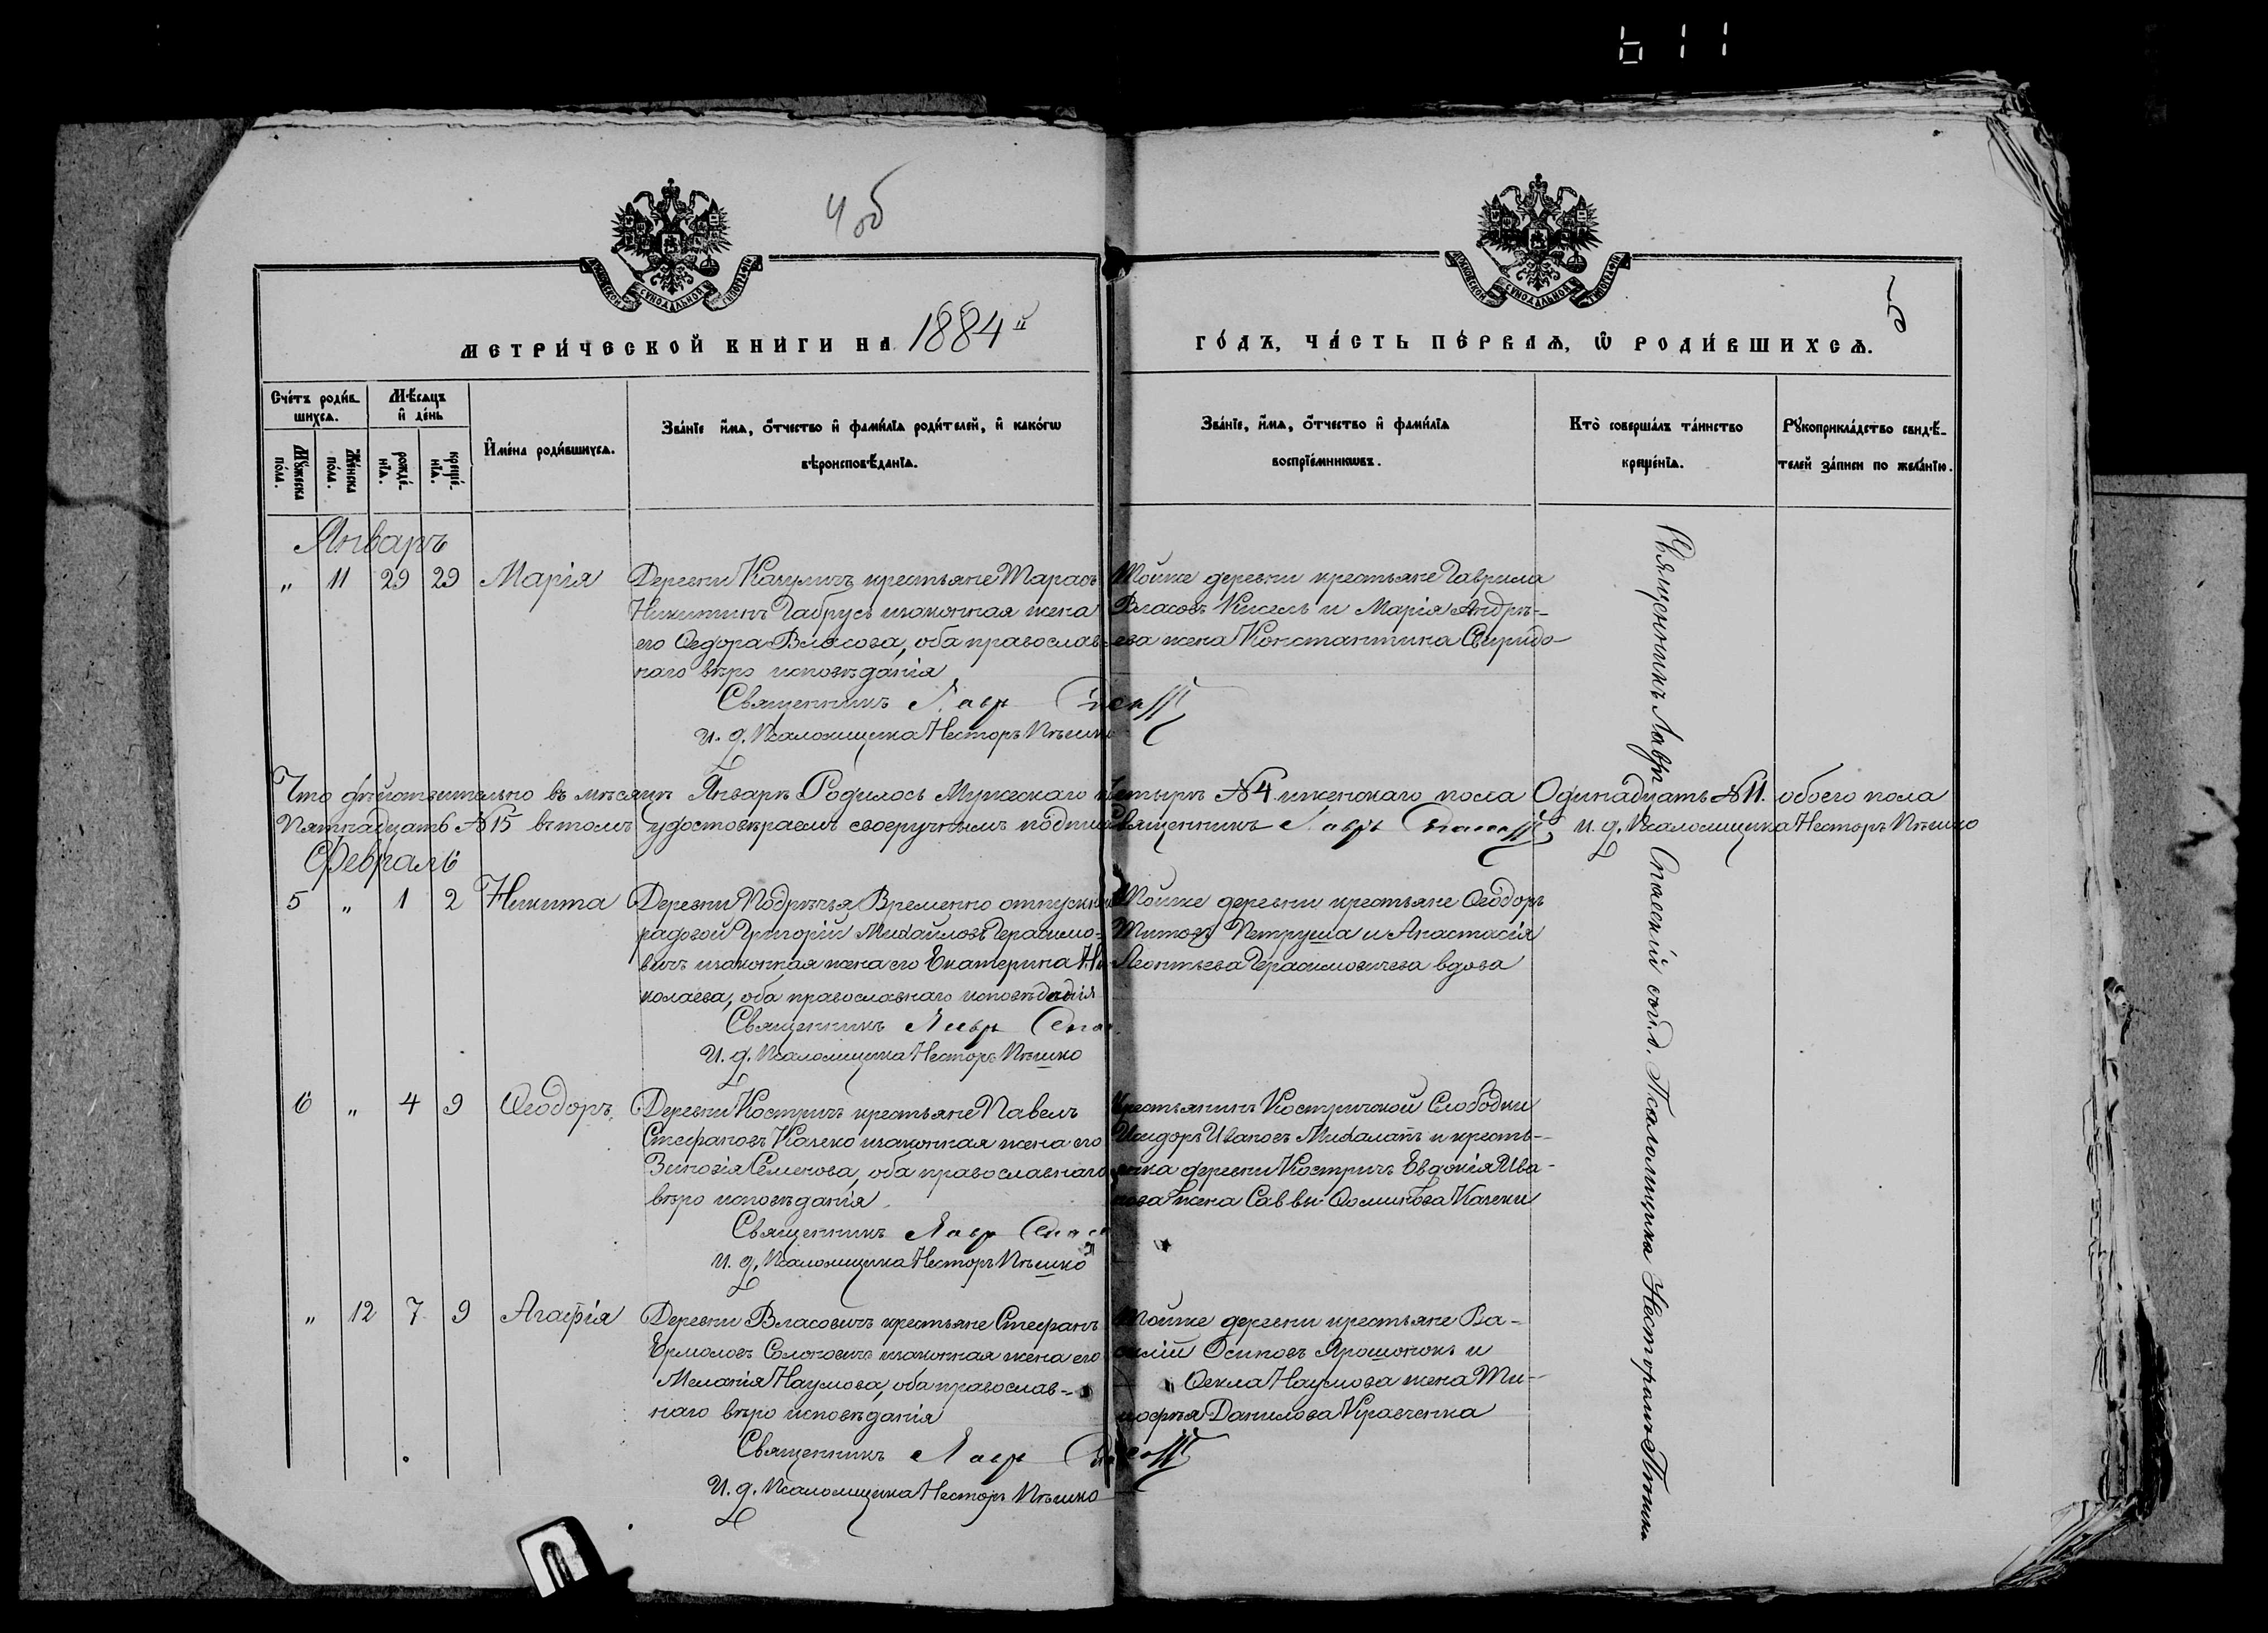 611
4 об
5
МЕТРИ́ЧЕСКОЙ КНИ́ГИ НА 1884й
ГО́ДЪ, ЧА́СТЬ ПЕ́РВАѦ, Ѡ҆ РОДИ́ВШИХСѦ.
Сче́тъ роди́в-
шихсѧ.
Мѣ́сѧцъ
и҆ де́нь
Мꙋ́жеска
по́ла.
Же́нска
по́ла.
рожде́-
нїѧ.
креще́-
нїѧ.
И҆мена̀ роди́вшихсѧ.
Зва́нїе и҆́мѧ, ѻ҆́тчество и҆ фами́лїѧ роди́телей, и҆ како́гѡ
вѣроисповѣ́данїѧ.
Зва́нїе, и҆́мѧ, ѻ҆́тчество и҆ фами́лїѧ
воспрїе́мникѡвъ.
Кто̀ соверша́лъ та́инство
креще́нїѧ.
Рꙋкоприкла́дство свидѣ́-
телей за́писи по жела́нїю.
Январь
„ 11 29 29 Марія Деревни Качуличъ крестьяне Тарасъ
Никитинъ Габрусь изаконная жена
его Ѳедора Власова, оба православ-
наго вѣро исповѣданія
Священникъ Лавръ
И. д. Псаломщика Несторъ Пѣшко
Тойже деревни крестьяне Гаврила
Власовъ Кисель и Марія Андрѣ-
ева жена Константина Свиридо
Что дѣйствительно въ мѣсяцѣ Январѣ Родилось Мужескаго четырѣ №4 иженскаго пола Одинадцать №11. обоего пола
Пятнадцать №15 втомъ удостовѣряемъ своеручнымъ Священникъ Лавръ И. д. Псаломщика Несторъ Пѣшко
Февраль
5 „ 1 2 Никита Деревни Подрѣчья Временно
рядовой Григорій Михайловъ Герасимо-
вичъ изаконная жена его Екатерина Ни-
колаева, оба православнаго исповѣданія
Священникъ Лавръ
И. д. Псаломщика Несторъ Пѣшко
Тойже деревни крестьяне Ѳеодоръ
Титовъ Петруша и Анастасія
Леонтьева Герасимовичева вдова
6 „ 4 9 Ѳеодоръ. Деревни Костричъ крестьяне Павелъ
Стефановъ Калеко изаконная жена его
Зиновія Семенова, оба православнаго
вѣро исповѣданія
Священникъ Лавръ
И. д. Псаломщика Несторъ Пѣшко
Крестьянинъ Костричкой Слободки
Исидоръ Ивановъ и кресть-
янка деревни Костричъ Евдокія Ива-
нова жена Саввы Ѳоминова Калеки
„ 12 7 9 Агафія Деревни Власовичъ крестьяне Стефанъ
Ермоловъ Солоновичъ изаконная жена его
Меланія Наумова, оба православ-
наго вѣро исповѣданія
Священникъ Лавръ
И. д. Псаломщика Несторъ Пѣшко
Тойже деревни крестьяне Ва-
силій Осиповъ Ярошонокъ и
Ѳекла Наумова жена Ти-
мофѣя Данилова Кравченка
Священникъ Лавръ Спасскій Псаломщика Несторомъ